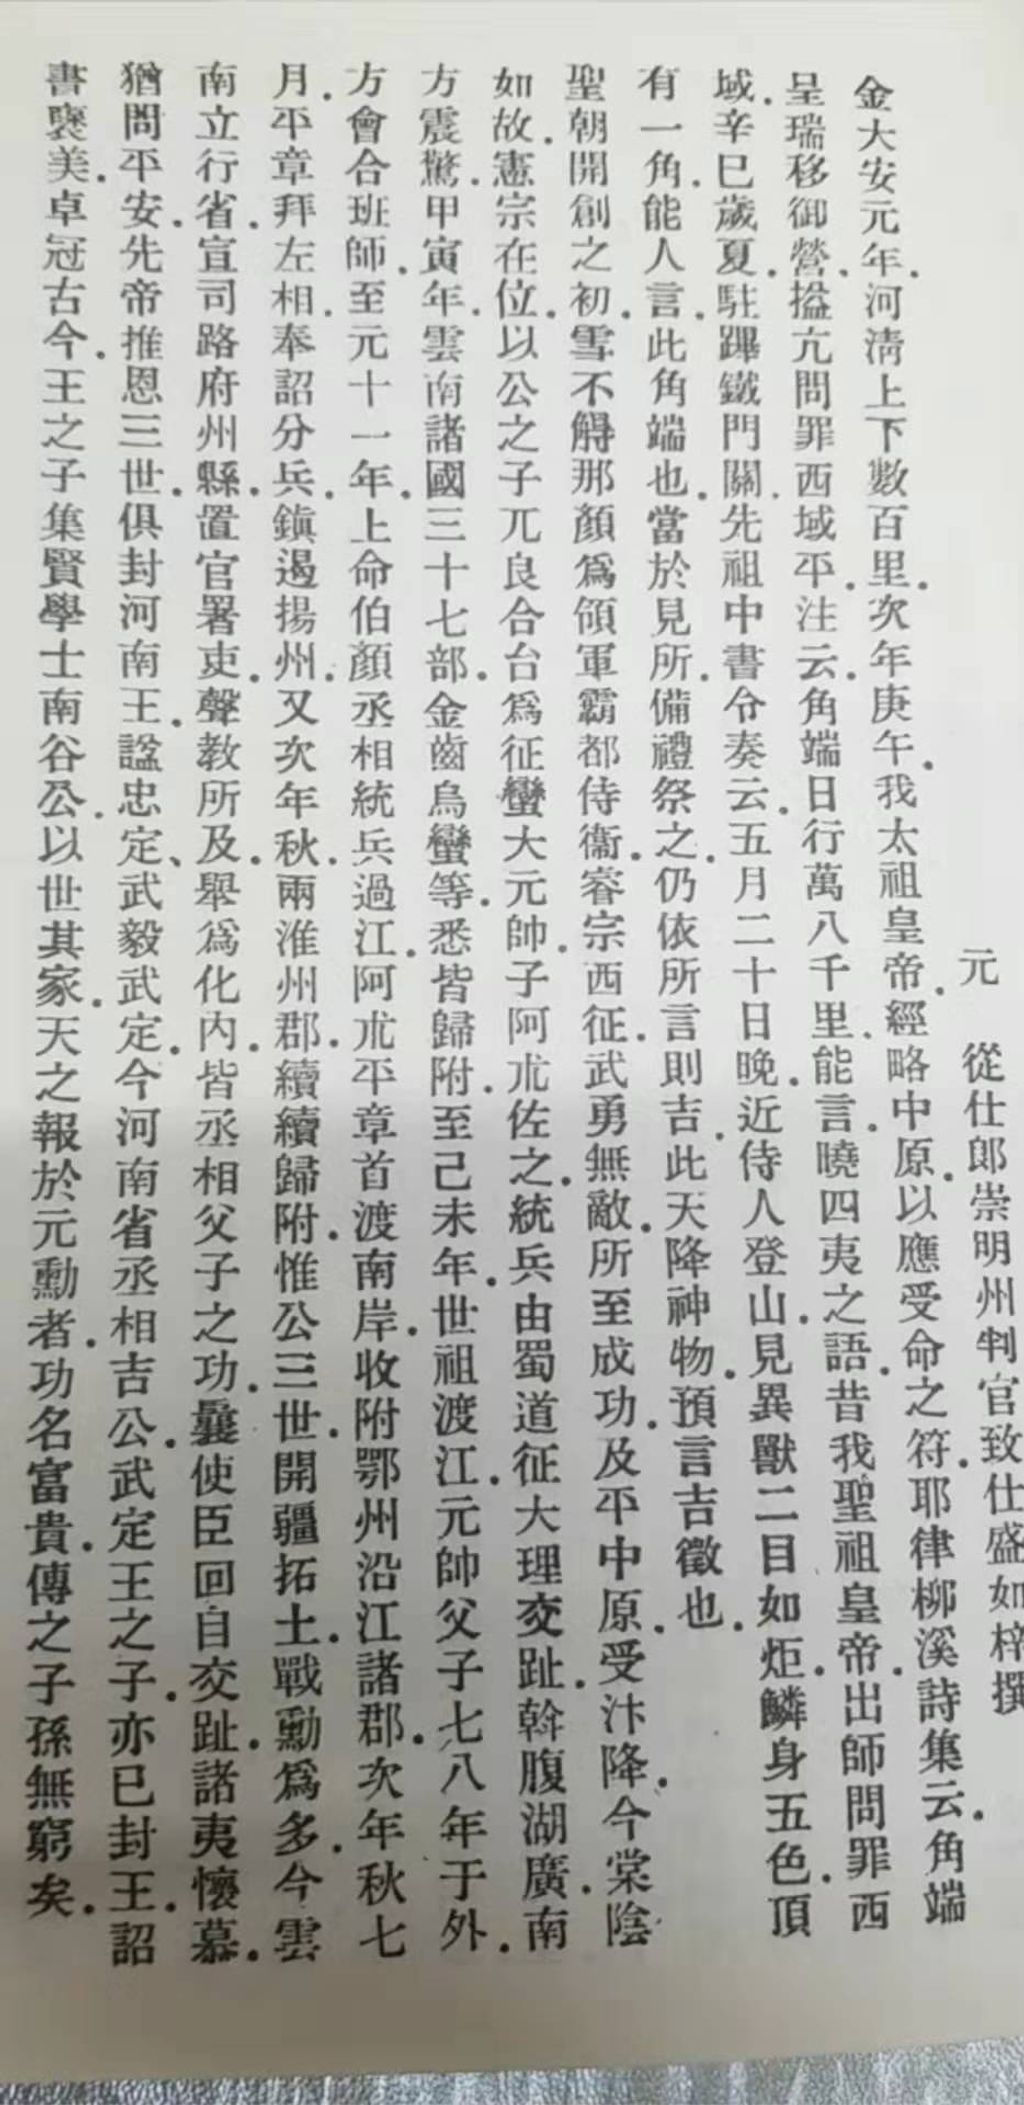 元　從仕郎崇明州判官致仕盛如梓撰
金大安元年.河清上下數百里.次年庚午.我太祖皇帝.經略中原.以應受命之符.耶律柳溪詩集云.角端
呈瑞移御營、搤亢問罪西域平.注云.角端日行萬八千里.能言.曉四夷之語.昔我聖祖皇帝.出師問罪西
域.辛巳歲夏.駐蹕鐵門關.先祖中書令奏云.五月二十日晚.近侍人登山.見異獸二目如炬.鱗身五色.頂
有一角.能人言.此角端也.當於見所.備禮祭之.仍依所言則吉.此天降神物.預言吉徵也.
聖朝開創之初.雪不觮那顏爲領軍霸都侍衞.睿宗西征.武勇無敵.所至成功.及平中原.受汴降.今棠陰
如故.憲宗在位.以公之子兀良合台爲征蠻大元帥.子阿朮佐之.統兵由蜀道征大理交趾.斡腹湖廣.南
方震驚.甲寅年.雲南諸國三十七部.金齒烏蠻等.悉皆歸附.至己未年.世祖渡江.元帥父子七八年于外.
方會合班師.至元十一年.上命伯顏丞相統兵過江.阿朮平章首渡南岸.收附鄂州沿江諸郡.次年秋七
月.平章拜左相.奉詔分兵.鎮遏揚州.又次年秋.兩淮州郡.續續歸附.惟公三世.開疆拓土.戰勳爲多.今雲
南立行省.宣司路府州縣.置官署吏.聲教所及.舉爲化內.皆丞相父子之功.曩使臣回自交趾.諸夷懷慕.
猶問平安.先帝推恩三世.俱封河南王.諡忠定、武毅武定.今河南省丞相吉公.武定王之子.亦已封王.詔
書褒美.卓冠古今.王之子集賢學士南谷公.以世其家.天之報於元勳者.功名富貴.傳之子孫無窮矣.